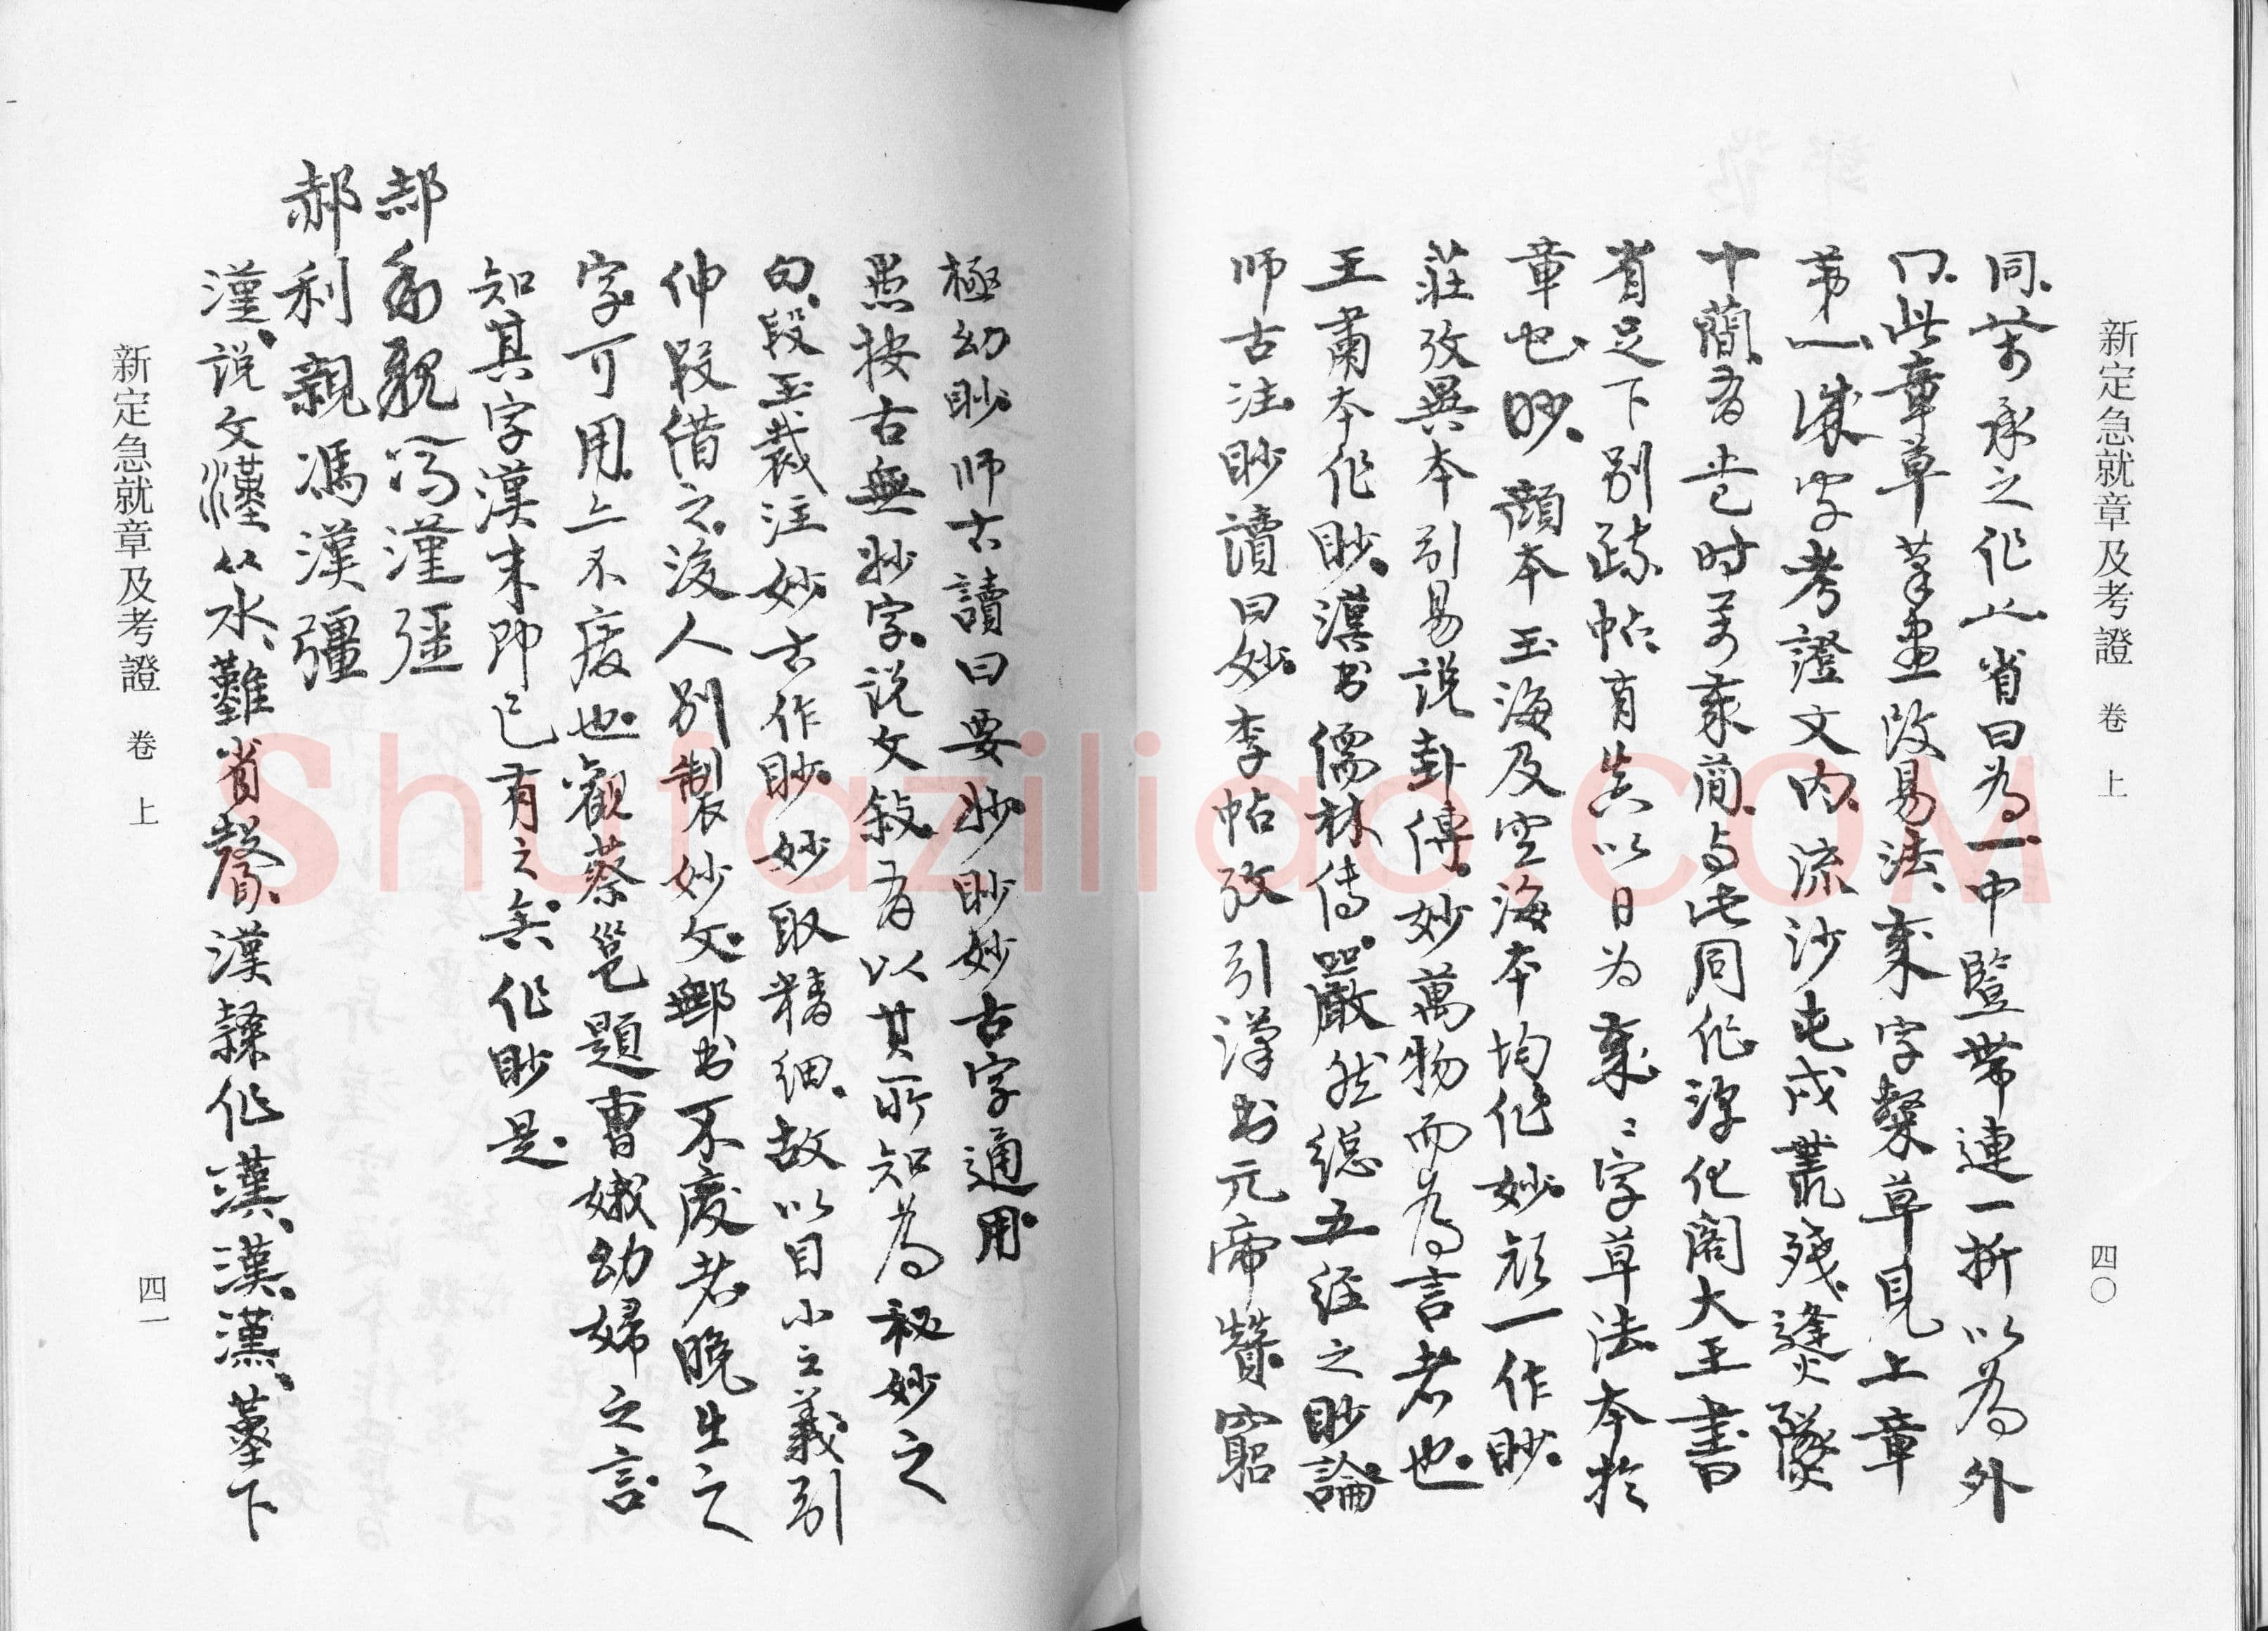 新定急就章及考證 卷上
四〇
同、萬承之作丄省曰為一中豎帶連一折以為外
冂、此章草草畫改易法、字草見上章
第一字考證文內、流沙屯戍叢殘、逢火隧
十簡、有時簡、与此同作淳化閣大王書
省足下別疏帖、有以日為字草法本於
章也、眇、顏本玉海及空海本均作妙、顏一作眇、
莊攷異本引易說卦傳、妙萬物而為言者也、
王肅本作眇、漢书儒林傳、嚴然總五經之眇論
师古注、眇讀曰妙、李帖攷引漢书元帝贊、窮
極幼眇、师古讀曰要妙、眇妙古字通用、
愚按古無妙字、說文敍、有以其所知為秘妙之
句、段玉裁注、妙古作眇、妙取精細、故以目小之義引
伸段借之、後人別製妙文、鄉书不廢者、晚生之
字可用、上不廢也、觀蔡邕題曹娥幼婦之言
知其字漢末即已有之矣、作眇是、
郝利親馮漢彊
郝利親馮漢彊
漢、說文漢从水、難省聲、漢隸作漢、漢、漢、下
新定急就章及考證 卷上
四一
Shufaziliao.COM